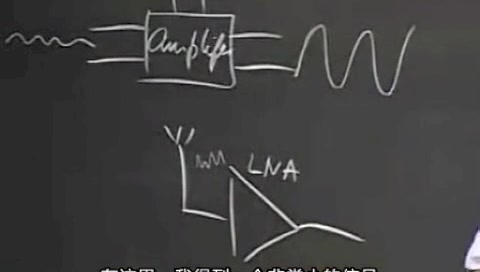 Amplifier
LNA
在这里 我得到一个非常小的信号